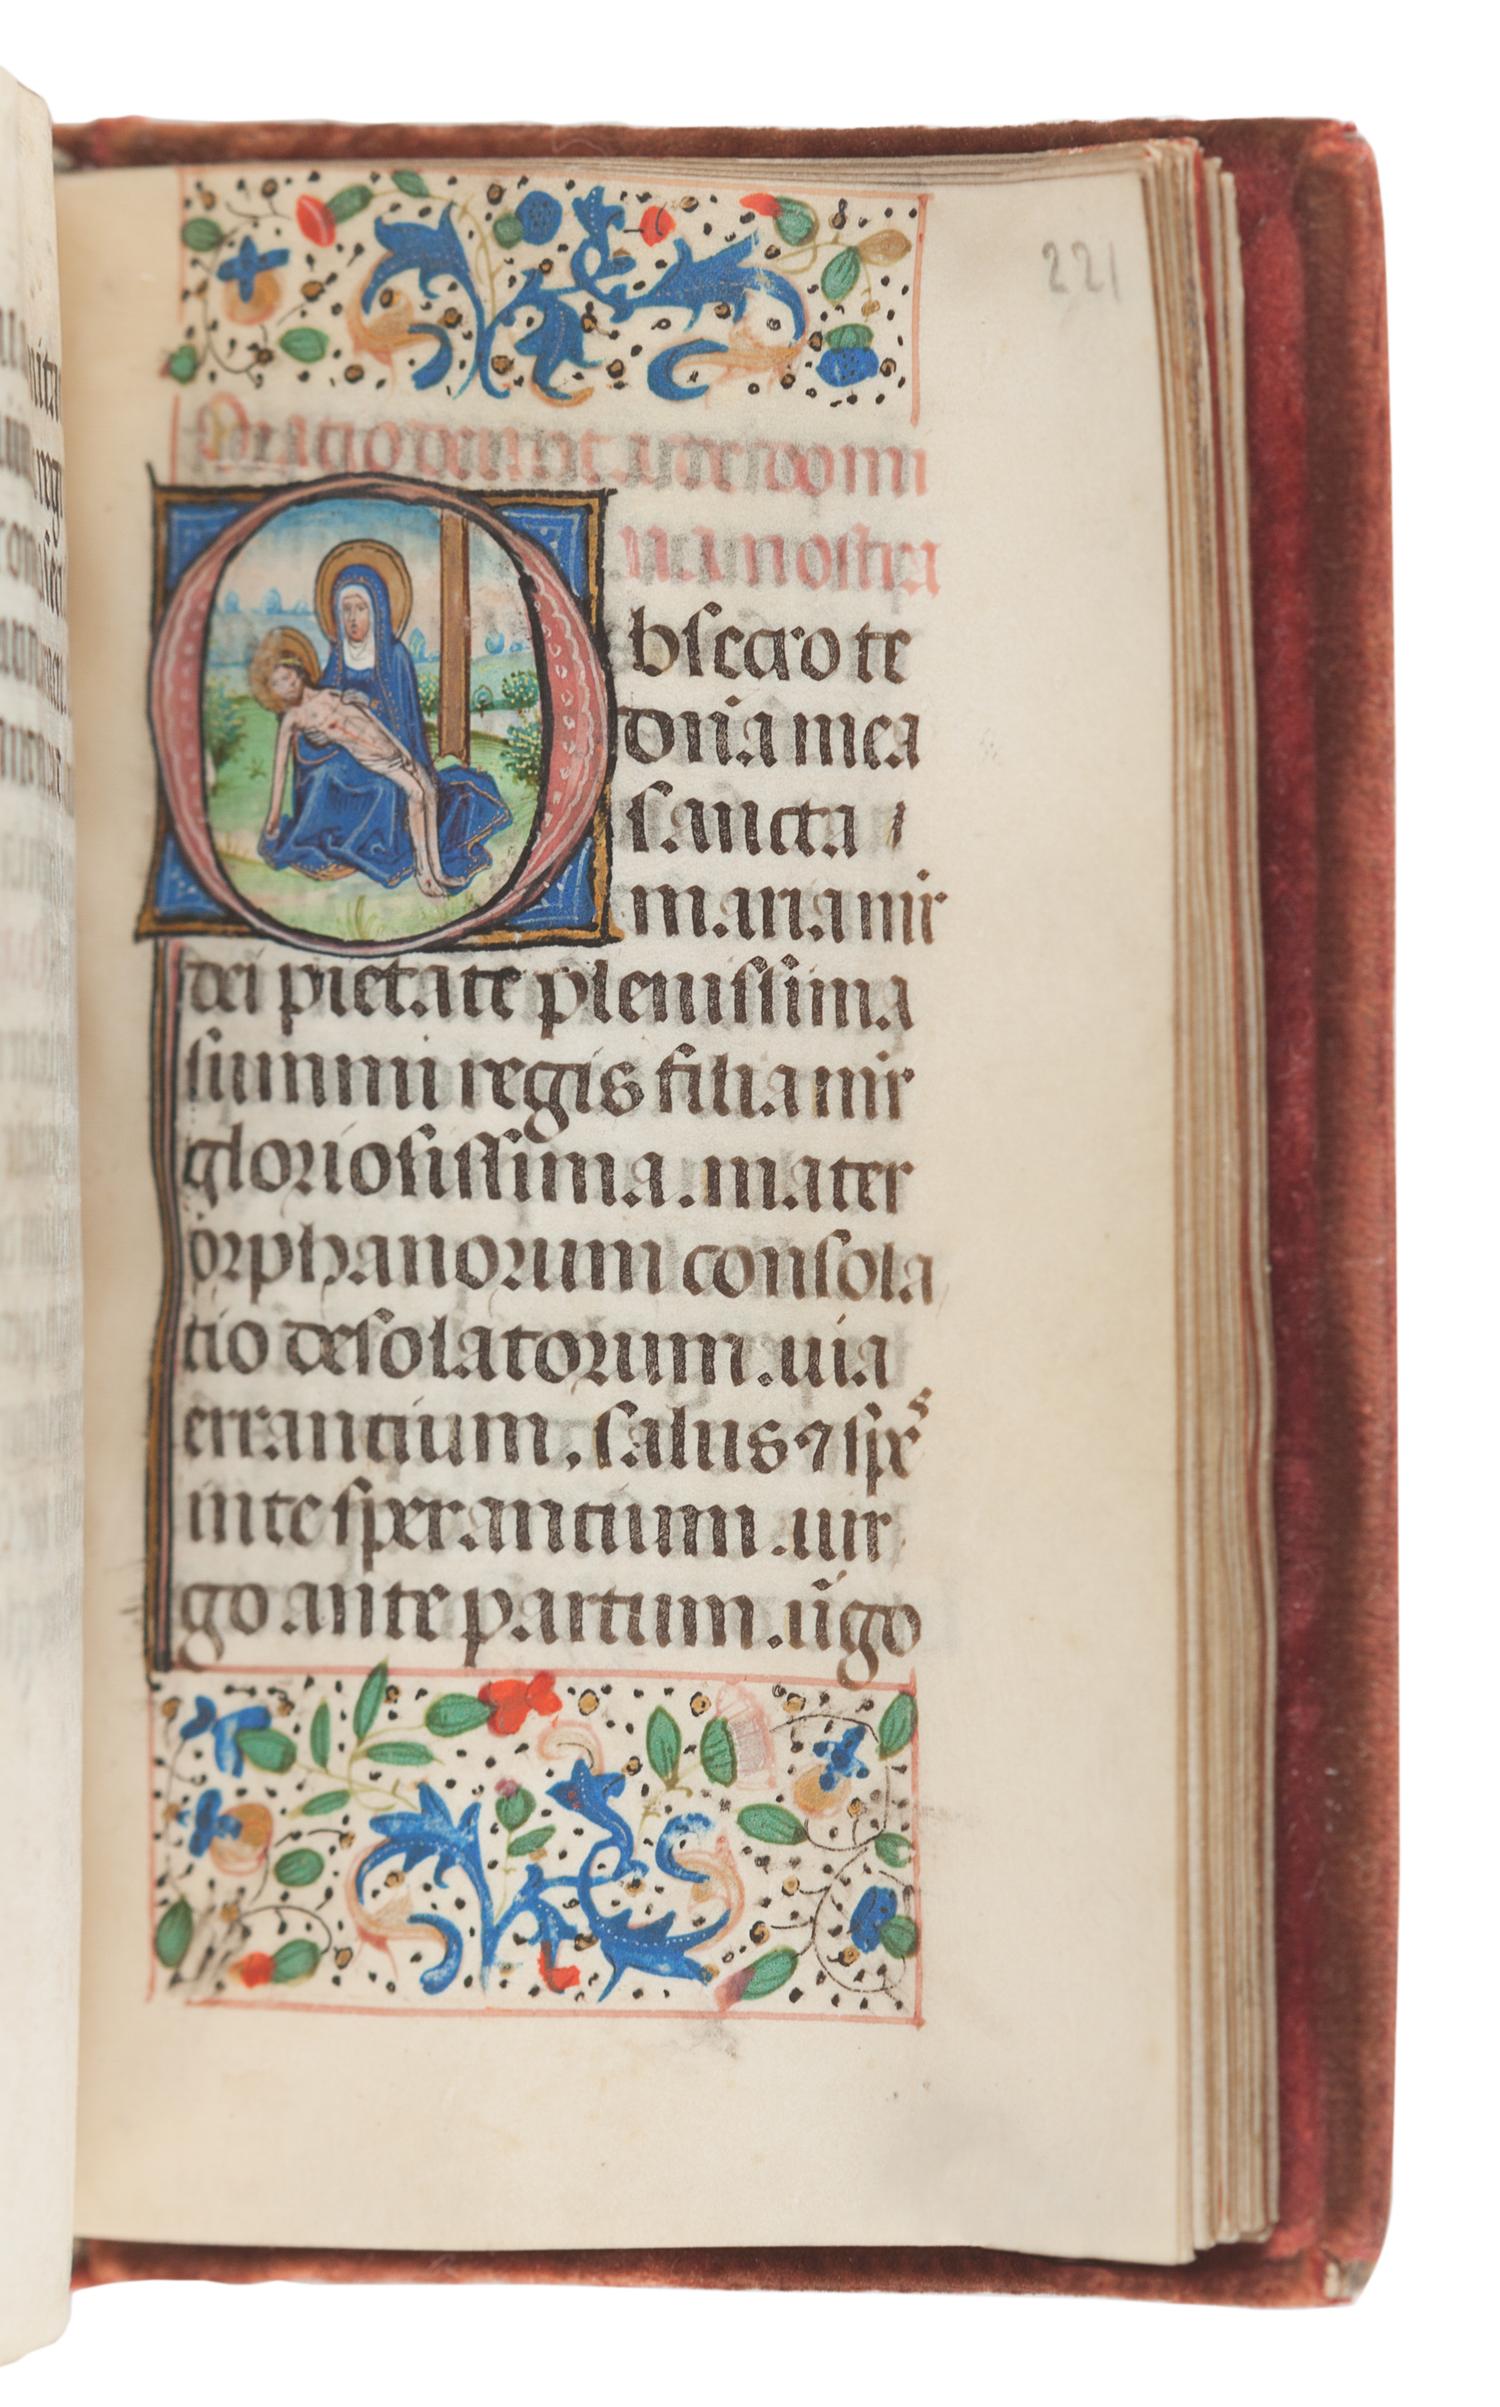 221
Oratio deuot ad te domi
na nostra
Obsecro te
dn̄a mea
sancta
maria mr̄
dei pietate plenissima
summi regis filia mr̄
gloriosissima. mater
orphanorum consola
tio desolatorum. uia
errantium. salus ⁊ spes
in te sperantium. uir
go ante partum. u̇go